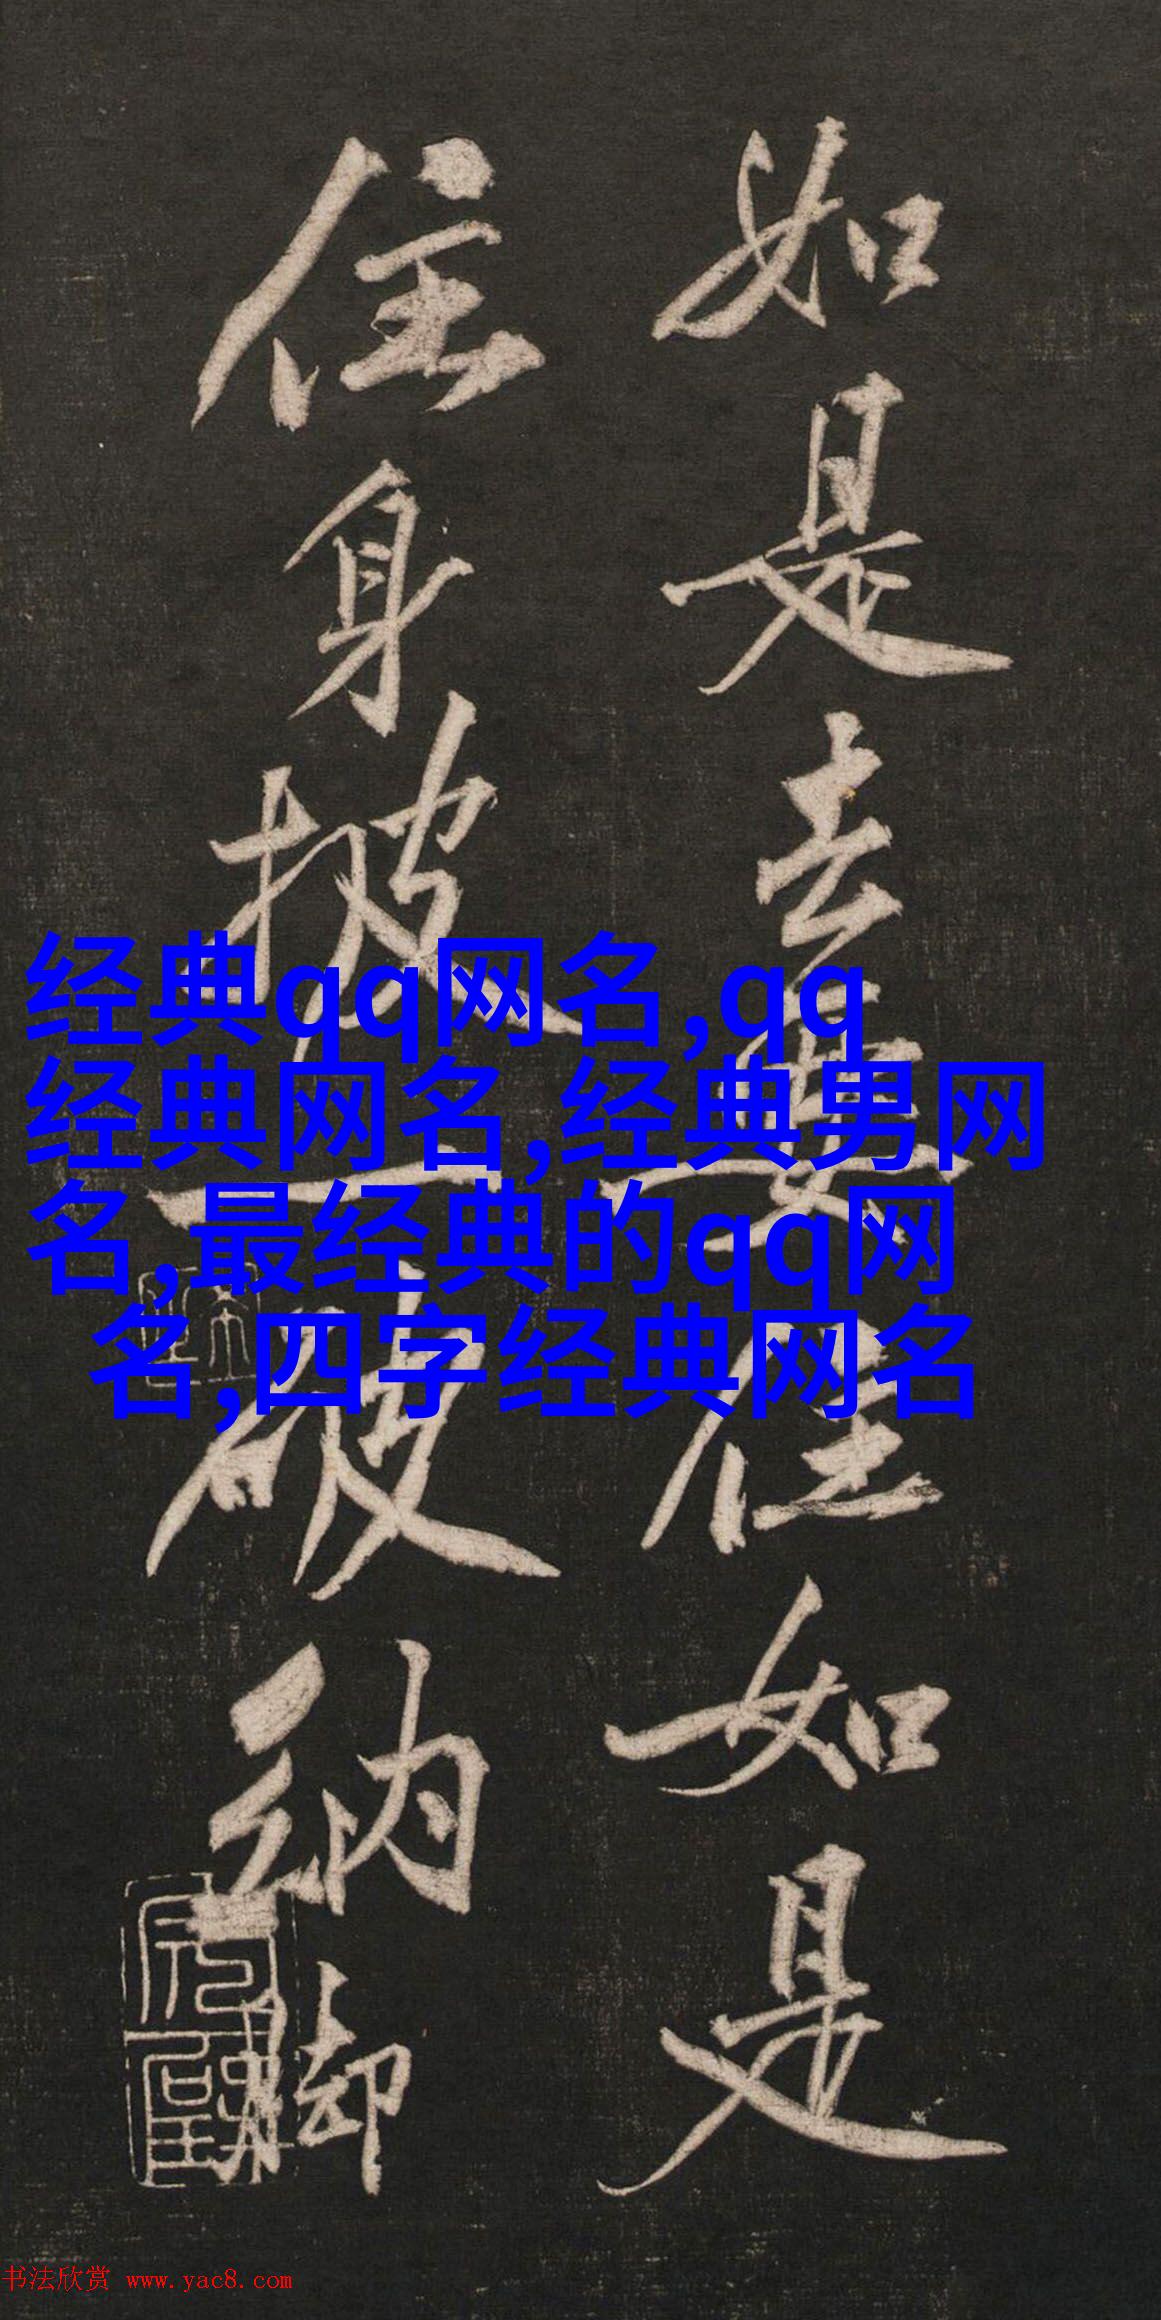 如是去要住如是
住身披一破衲脚
经典qq网名,qq
经典网名,经典男网
名,最经典的qq网
名,四字经典网名
书法欣赏 www.yac8.com